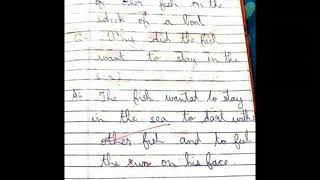 of other fish on the
deck of a boat
Q4 Why did the fish
want to stay in the
sea
A4 The fish wanted to stay
in the sea to dart with
other fish and to feel
the sun on his face